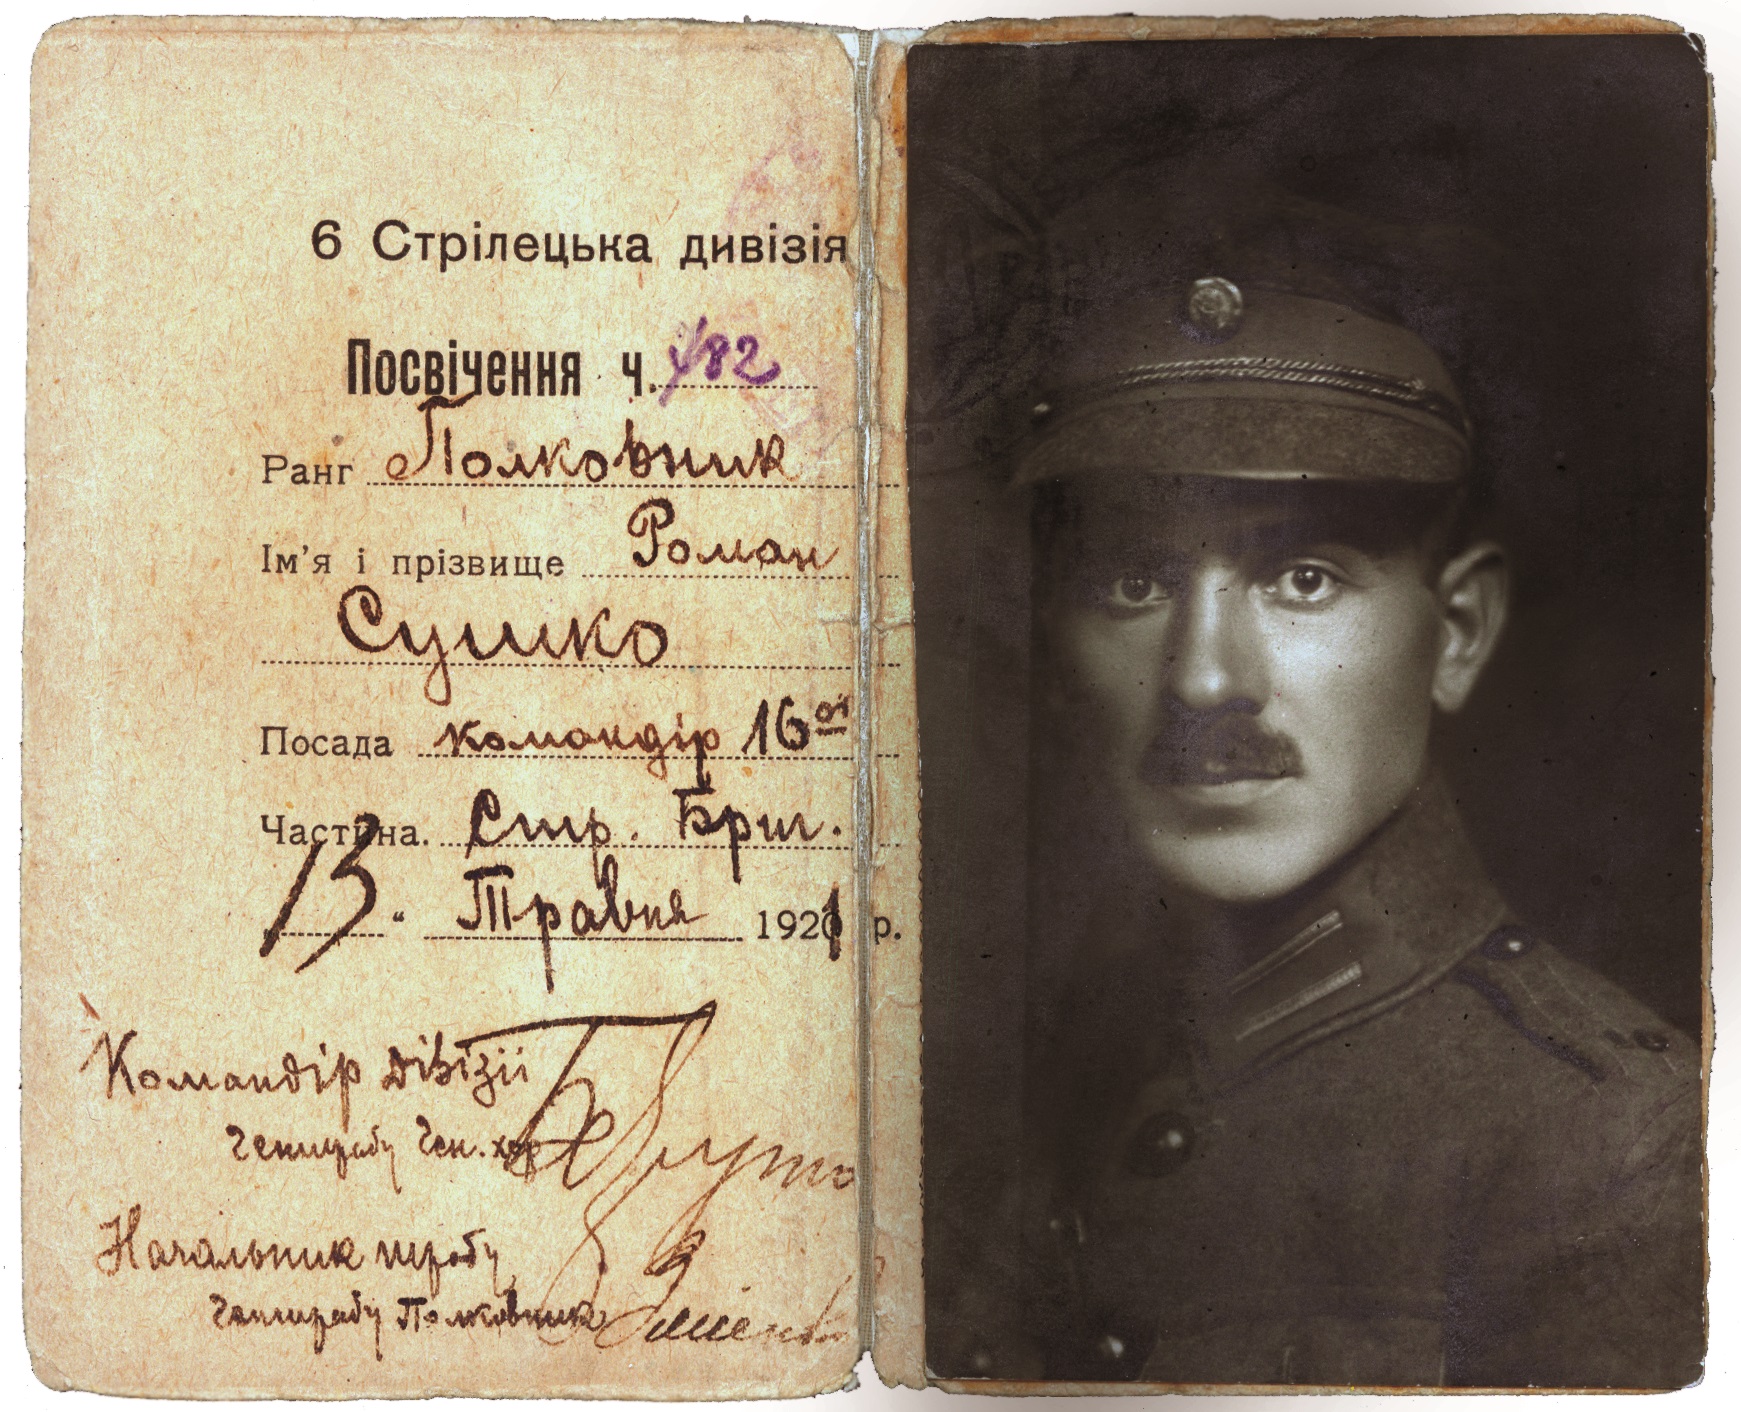 6 Стрілецька дивізія
Посвічення ч. 482
Ранг Полковник
Ім'я і прізвище Роман
Сушко
Посада командір 16ої
Частина. Стр. Бриг.
13. Травня 1921 р.
Командір дівізіі
Генштабу Ген. хор
Начальник штабу
Генштабу Полковник